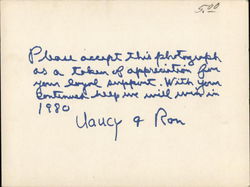 5.00
Please accept this photograph
as a token of appreciation for
your loyal support. With your
continued help we will win in
1980
Nancy & Ron